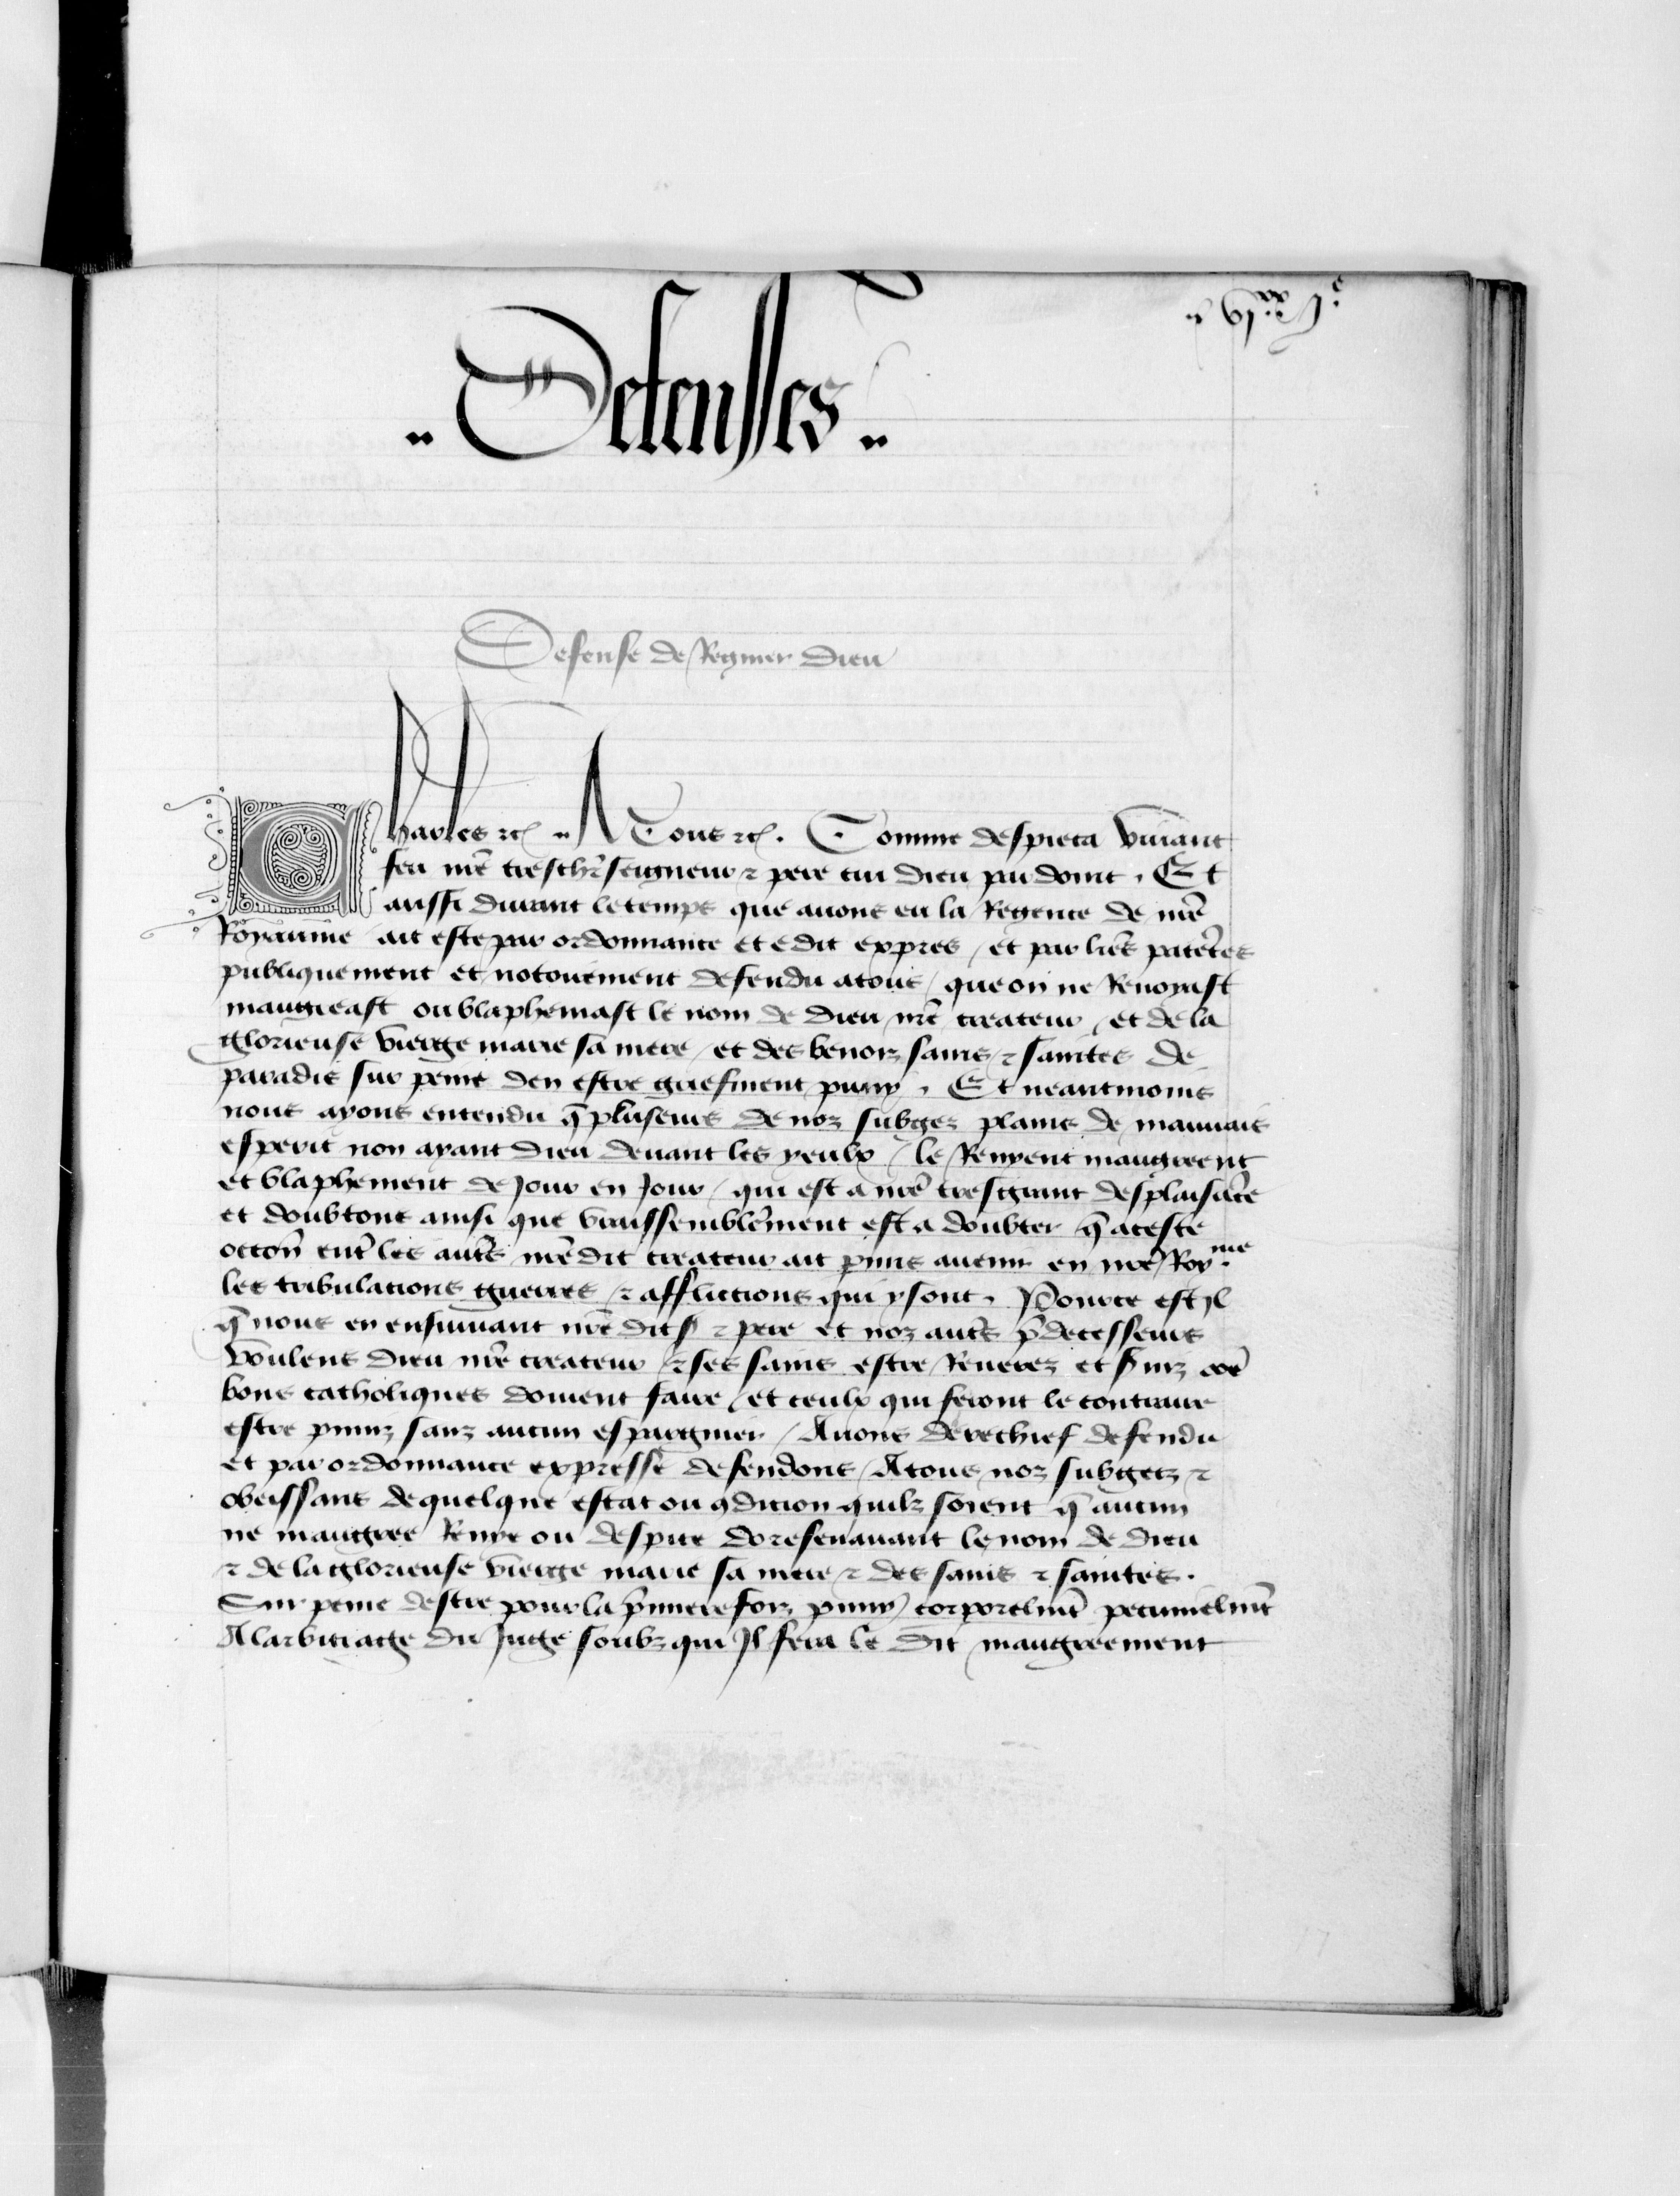 .. Defensses ..
Defense de Regnier Dieu
Charles etc .. A Tous etc. Comme despieca vivant
feu nrẽ treschr̃ seigneur ⁊ pere cui Dieu pardoint. Et
aussi durant le temps que avons eu la Regence de nrẽ
Royaume ait este par ordonnance et edit expres / et par lrẽs patẽtes
publiquement et notoirement defendu a tous / que on ne Renoyast
maugreast ou blaphemast le nom de Dieu nrẽ createur / et de la
glorieuse vierge marie sa mere / et des benoiz sains ⁊ saintes de
paradis sur peine den estre griefment puny. Et neantmoins
nous ayons entendu q̃ pluseurs de noz subgez plains de mauvais
esperit non ayant Dieu devant les yeulx / le Renyent maugreent
et blaphement de Jour en Jour / qui est a nrẽ tresgrant desplaisãce
et doubtons ainsi que vraissemblẽment est a doubter q̃ a ceste
occoñ entr̃ les autr̃s nrẽ dit createur ait pmis avenir en nrẽ Roy.me
les tribulacions guerres ⁊ afflictions qui y sont. Pource est Jl
q̃ nous en ensuivant nrẽ dit s ⁊ pere et noz autr̃s p̃decesseurs
Voulens Dieu nrẽ createur ⁊ ses sains estre Reverez et s̃viz cõe
bons catholiques doivent faire / et ceulx qui feront le contraire
estre puniz sanz aucun espargnier / Avons derechief defendu
et par ordonnance expresse defendons / A tous noz subgetz ⁊
obeissans de quelque estat ou ꝯdicion quilz soient q̃ aucun
ne maugree Renye ou despite doresenavant le nom de Dieu
⁊ de la glorieuse vierge marie sa mere ⁊ des sains ⁊ saintes.
Sur peine destre pour la p̃miere foiz puny corporelmt̃ pecunielmt̃
A larbitrage du Juge soubz qui Jl fera le dit maugreement